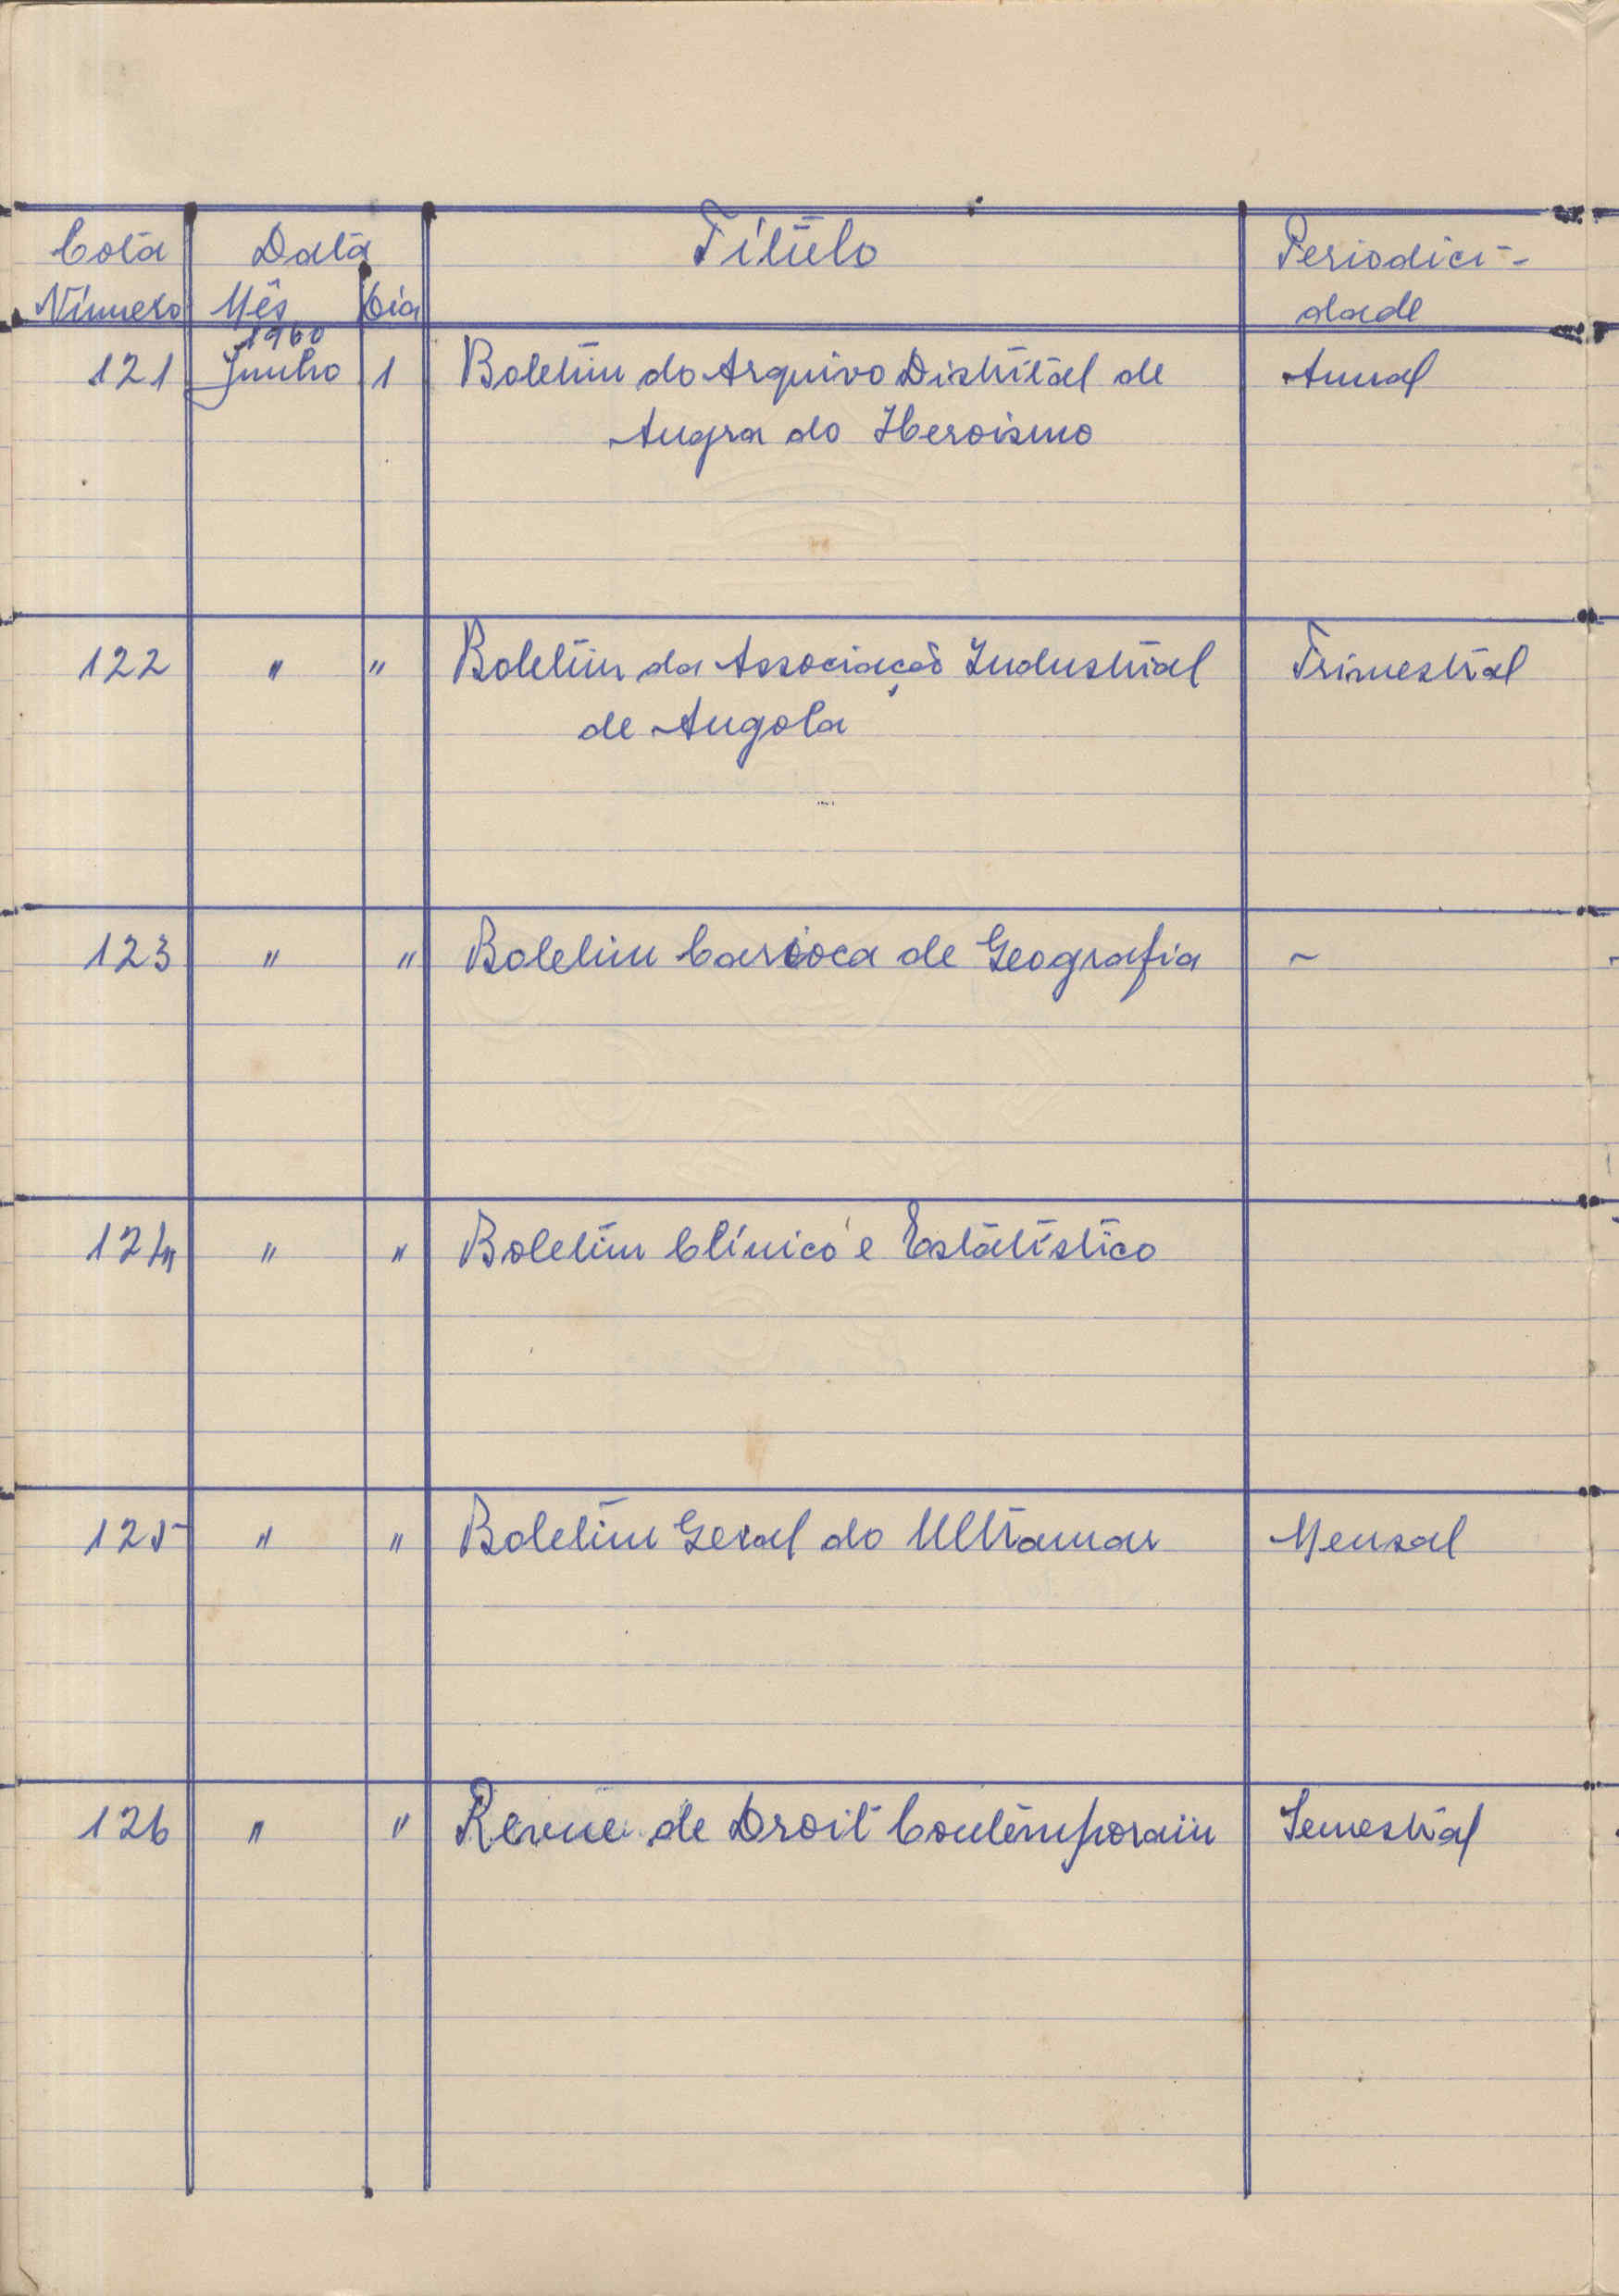 Cota Data Título Periodici-
Número Mês Dia dade
1960
121 Junho 1 Boletim do Arquivo Distrital de Anual
Angra do Heroismo
122 " " Boletim da Associação Industrial Trimestral
de Angola
123 " " Boletim Carioca de Geografia ~
124 " " Boletim Clínico e Estatístico
125 " " Boletim Geral do Ultramar Mensal
126 " " Revue de Droit Contemporain Semestral